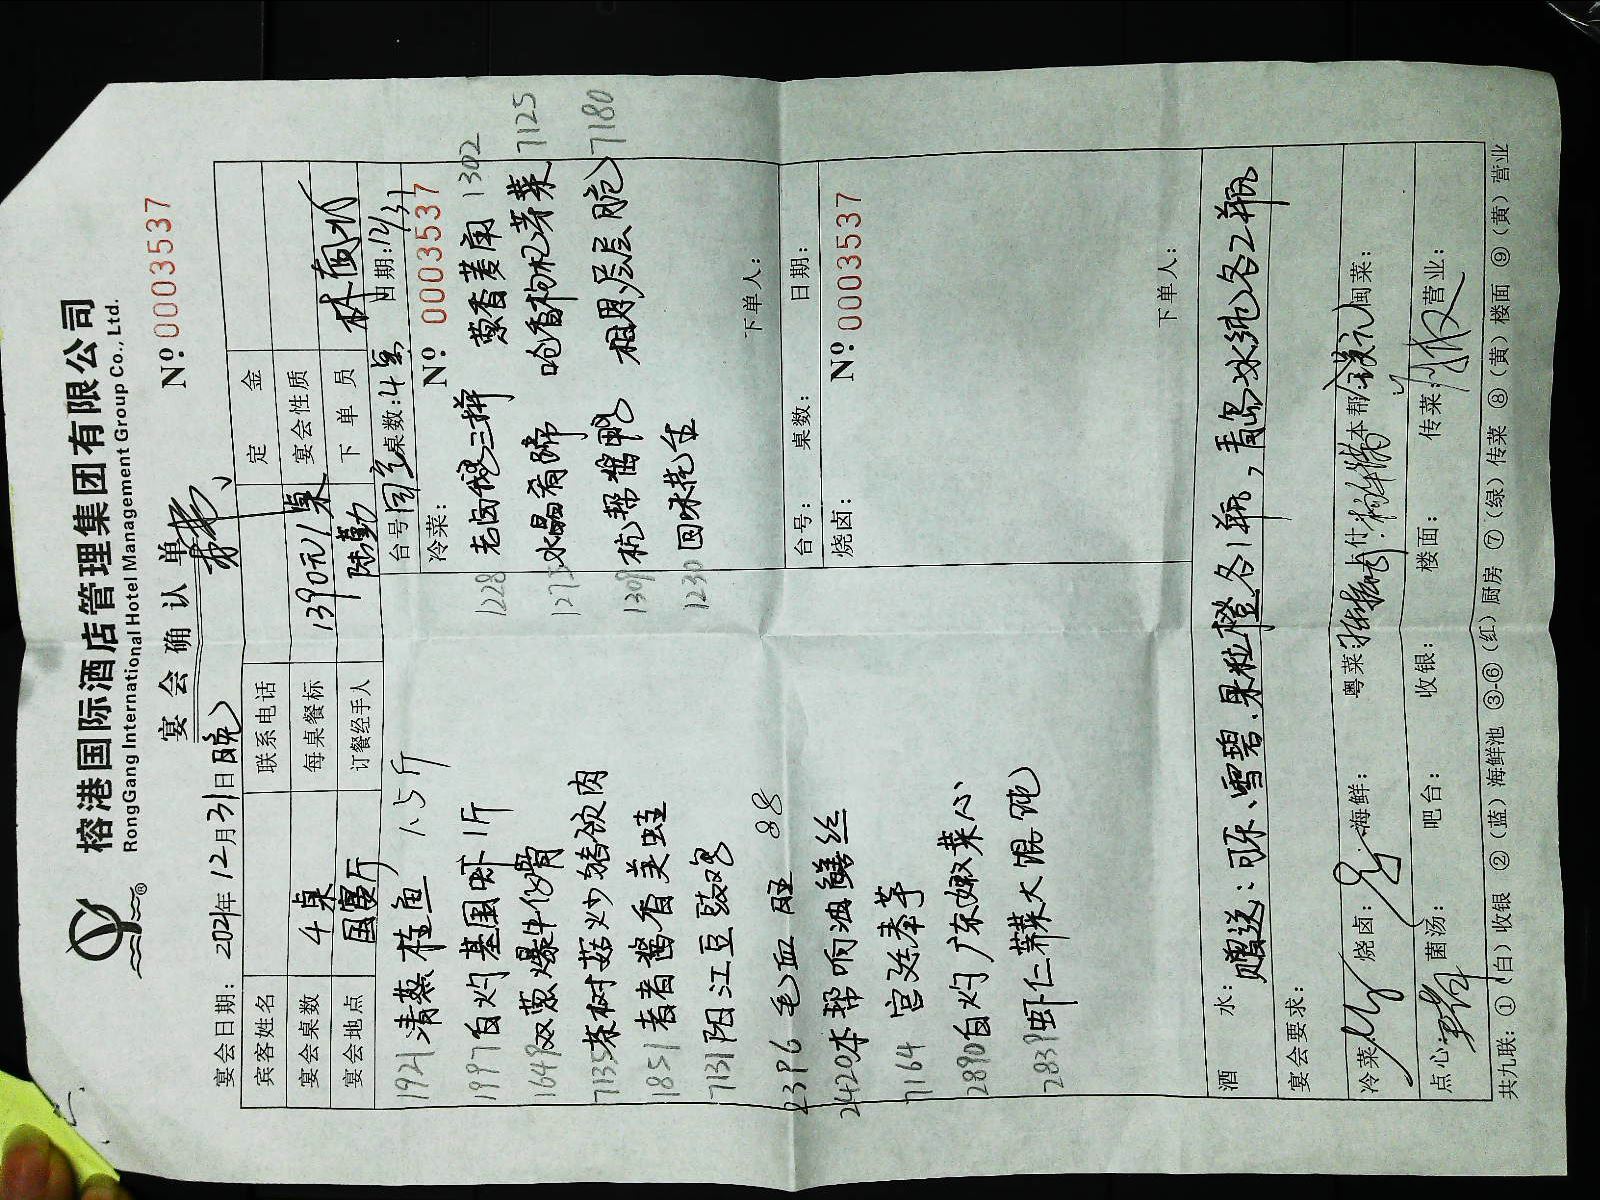 榕港国际酒店管理集团有限公司
RongGang International Hotel Management Group Co., Ltd.
宴会确认单
Nº:0003537
宴会日期: 2021年12月31日晚
宾客姓名 联系电话 定金
宴会桌数 4桌 每桌餐标 1390元/1桌 宴会性质
宴会地点 国宴厅 订餐经手人 陈勤 下单员
1921 清蒸桂鱼 1.5斤
1997 白灼基围虾 1斤
1649 双葱爆牛仔骨
7135 茶树菇炒猪颈肉
1851 者者酱香美蛙
7131 阳江豆豉
2396 毛血旺 88
2420 本帮响油鳝丝
7164 宫廷奉芋
2890 白灼广东嫩菜心
2839 虾仁荠菜大馄饨
台号: 桌数:4桌 日期:12/31
冷菜: Nº: 0003537
1228 老卤三拼 葱香萝 1302
1275 水晶肴蹄 呛香枸杞芽菜 7125
1309 杭帮酱鸭 相思层层脆 7180
1230 回味花生
下单人:
台号: 桌数: 日期:
烧卤: Nº:0003537
下单人:
酒水: 赠送:可乐、雪碧.果粒橙各1瓶,青岛冰纯各2瓶
宴会要求:
冷菜: 烧卤: 海鲜: 粤菜: 上什: 本帮: 闽菜:
点心: 菌汤: 吧台: 收银: 楼面: 传菜: 营业:
共九联: ①(白)收银 ②(蓝)海鲜池 ③-⑥(红)厨房 ⑦(绿)传菜 ⑧(黄)楼面 ⑨(黄)营业